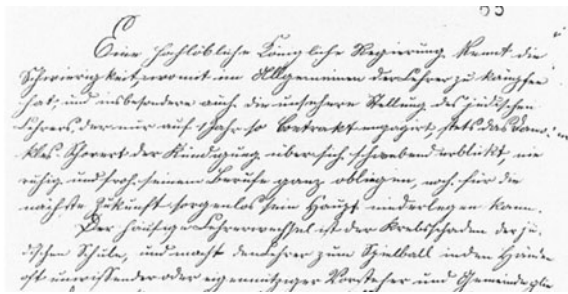 65
Eine hochlöbliche Königliche Regierung kennt die
Schwierigkeit, womit im Allgemeinen der Lehrer zu kämpfen
hat, und insbesondere auch die unsichere Stellung des jüdischen
Lehrers, der nur auf 1 Jahr so Contrakt engagirt, stets das Damo-
kles Schwert der Kündigung über sich schwebend erblickt, nie
ruhig und froh seinem Berufe ganz obliegen, noch für die
nächste Zukunft sorgenlos sein Haupt niederlegen kann.
Der häufige Lehrerwechsel ist der Krebsschaden der jü-
dischen Schule, und macht den Lehrer zum Spielball in den Händen
oft unwissender oder eigennütziger Vorsteher und Gemeindeglie